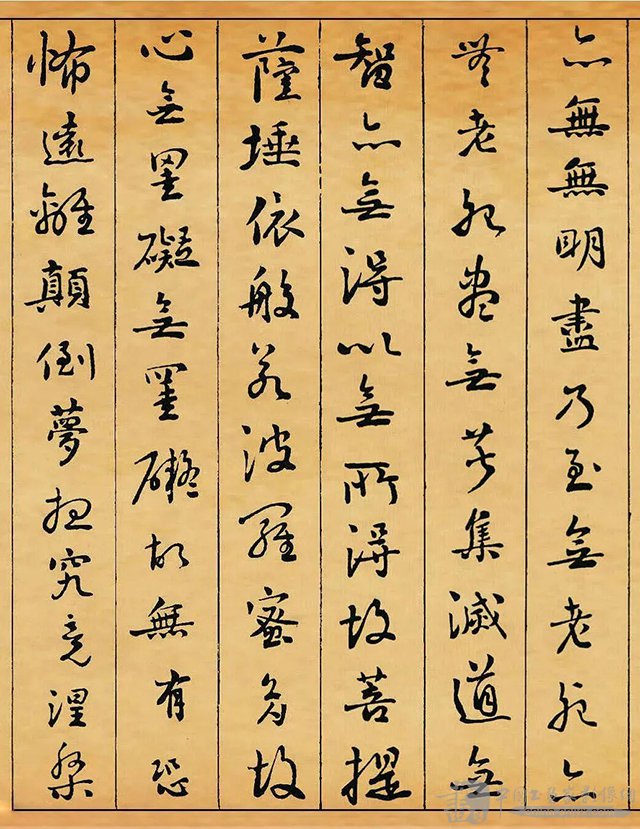 亦無無明盡乃至無老死亦
無老死盡無苦集滅道無
智亦無得以無所得故菩提
薩埵依般若波羅蜜多故
心無罣礙無罣礙故無有恐
怖遠離顛倒夢想究竟涅槃